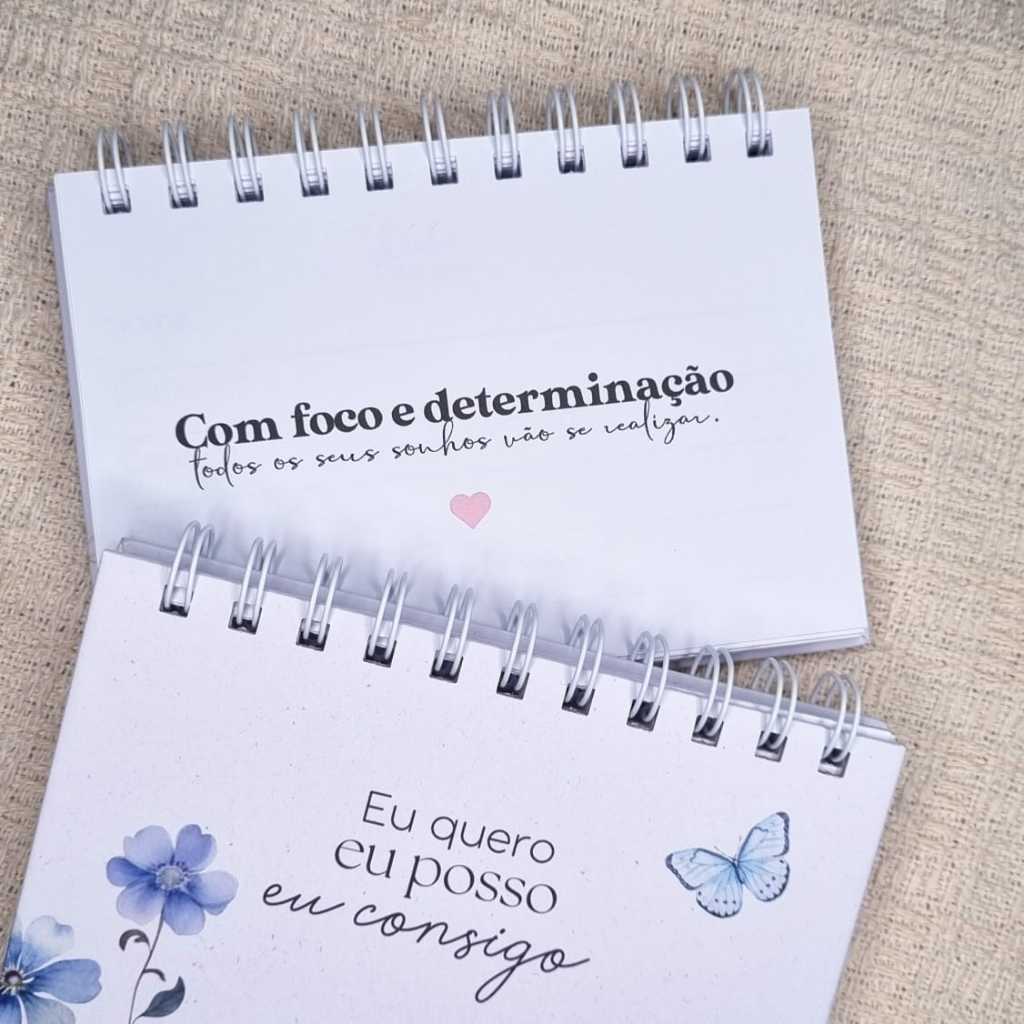 Com foco e determinação
todos os seus sonhos vão se realizar.
Eu quero
eu posso
eu consigo